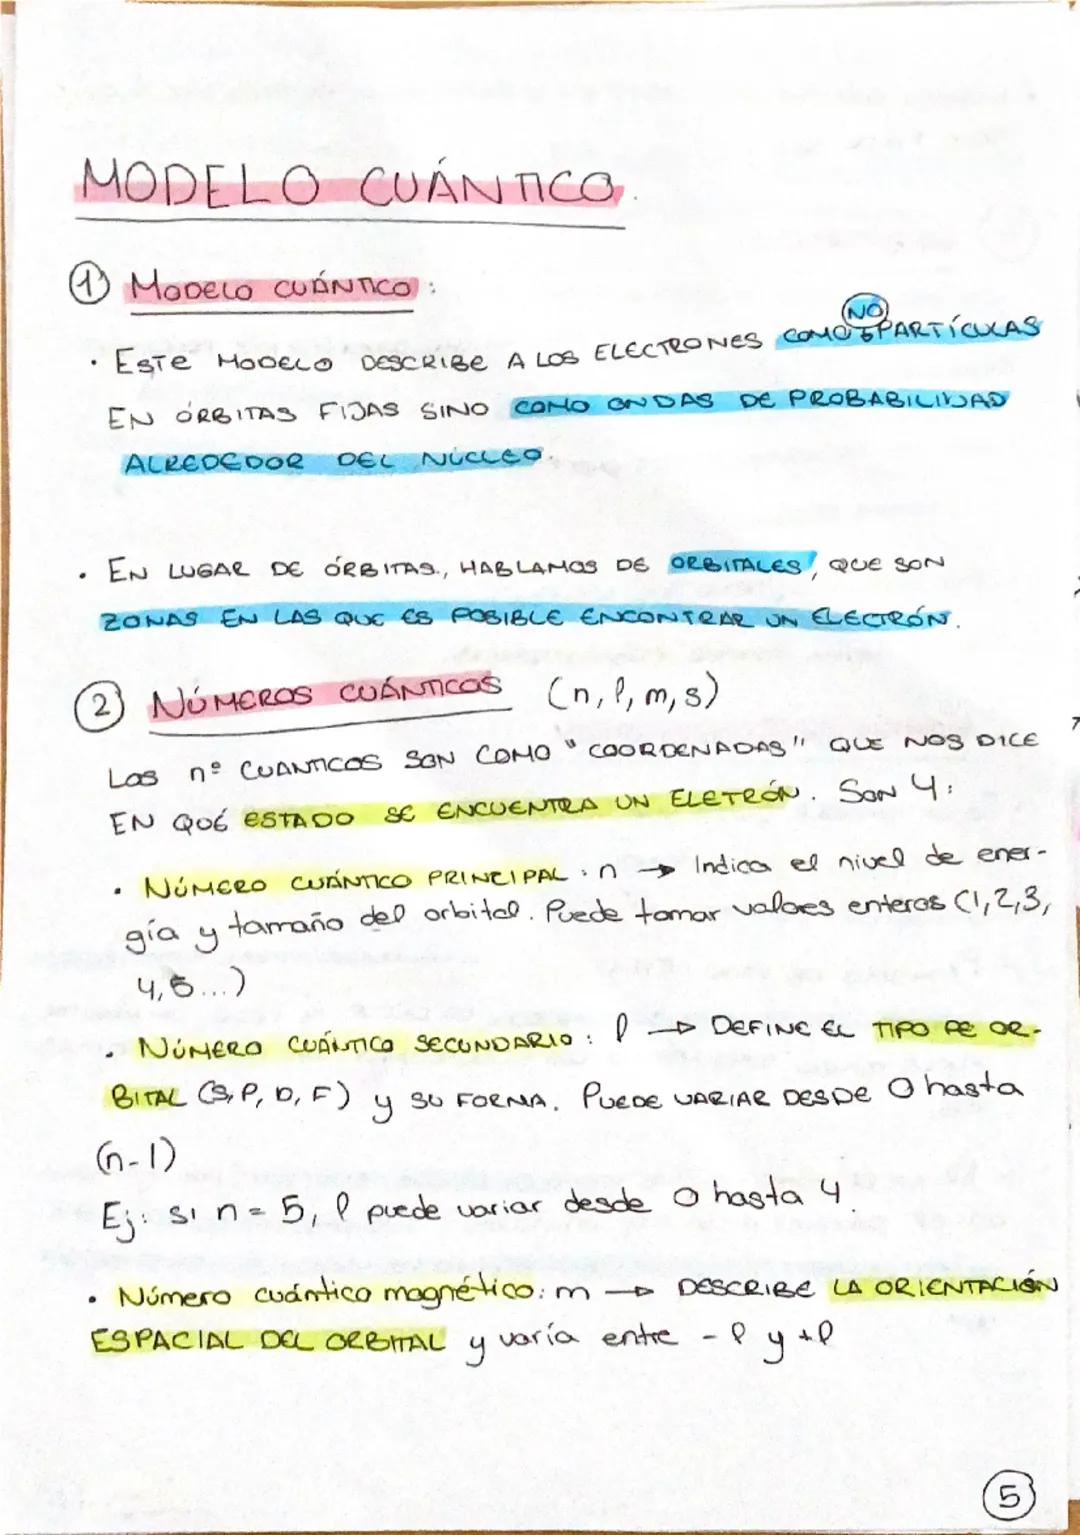 MODELO CUÁNTICO.
① MODELO CUÁNTICO:
NO
· ESTE MODELO DESCRIBE A LOS ELECTRONES COMO PARTÍCULAS
EN ÓRBITAS FIJAS SINO COMO ONDAS DE PROBABILIDAD
ALREDEDOR DEL NÚCLEO.
· EN LUGAR DE ÓRBITAS, HABLAMOS DE ORBITALES, QUE SON
ZONAS EN LAS QUE ES POSIBLE ENCONTRAR UN ELECTRÓN.
② NÚMEROS CUÁNTICOS (n, l, m, s)
LOS nº CUANTICOS SON COMO "COORDENADAS" QUE NOS DICE
EN QUÉ ESTADO SE ENCUENTRA UN ELETRÓN. SON 4:
· NÚMERO CUÁNTICO PRINCIPAL: n → Indica el nivel de ener-
gía y tamaño del orbital. Puede tomar valores enteros (1,2,3,
4,5...)
· NÚMERO CUÁNTICO SECUNDARIO: l → DEFINE EL TIPO DE OR-
BITAL (S, P, D, F) y SU FORMA. PUEDE VARIAR DESDE 0 hasta
(n-1)
Ej: SI n = 5, l puede variar desde 0 hasta 4.
· Número cuántico magnético: m → DESCRIBE LA ORIENTACIÓN
ESPACIAL DEL ORBITAL y varía entre -l y +l
⑤